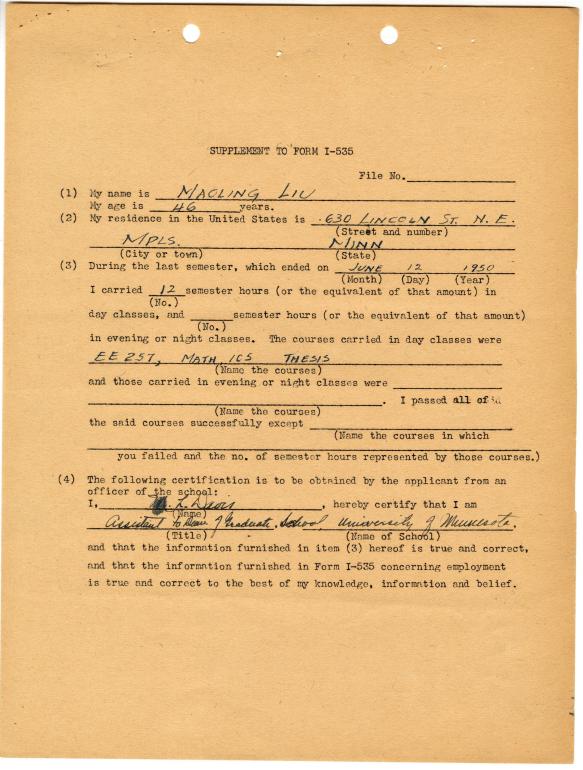 SUPPLEMENT TO FORM I-535
File No.
(1) My name is MAOLING LIU
My age is 46 years.
(2) My residence in the United States is 630 LINCOLN ST. N.E.
(Street and number)
MPLS. MINN
(City or town) (State)
(3) During the last semester, which ended on JUNE 12 1950
(Month) (Day) (Year)
I carried 12 semester hours (or the equivalent of that amount) in
(No.)
day classes, and semester hours (or the equivalent of that amount)
(No.)
in evening or night classes. The courses carried in day classes were
EE 257, MATH, 105 THESIS
(Name the courses)
and those carried in evening or night classes were
. I passed all of
(Name the courses)
the said courses successfully except
(Name the courses in which
you failed and the no. of semester hours represented by those courses.)
(4) The following certification is to be obtained by the applicant from an
officer of the school:
I, L. Davis, hereby certify that I am
(Name)
Assistant to Dean of Graduate School, University of Minnesota.
(Title) (Name of School)
and that the information furnished in item (3) hereof is true and correct,
and that the information furnished in Form I-535 concerning employment
is true and correct to the best of my knowledge, information and belief.